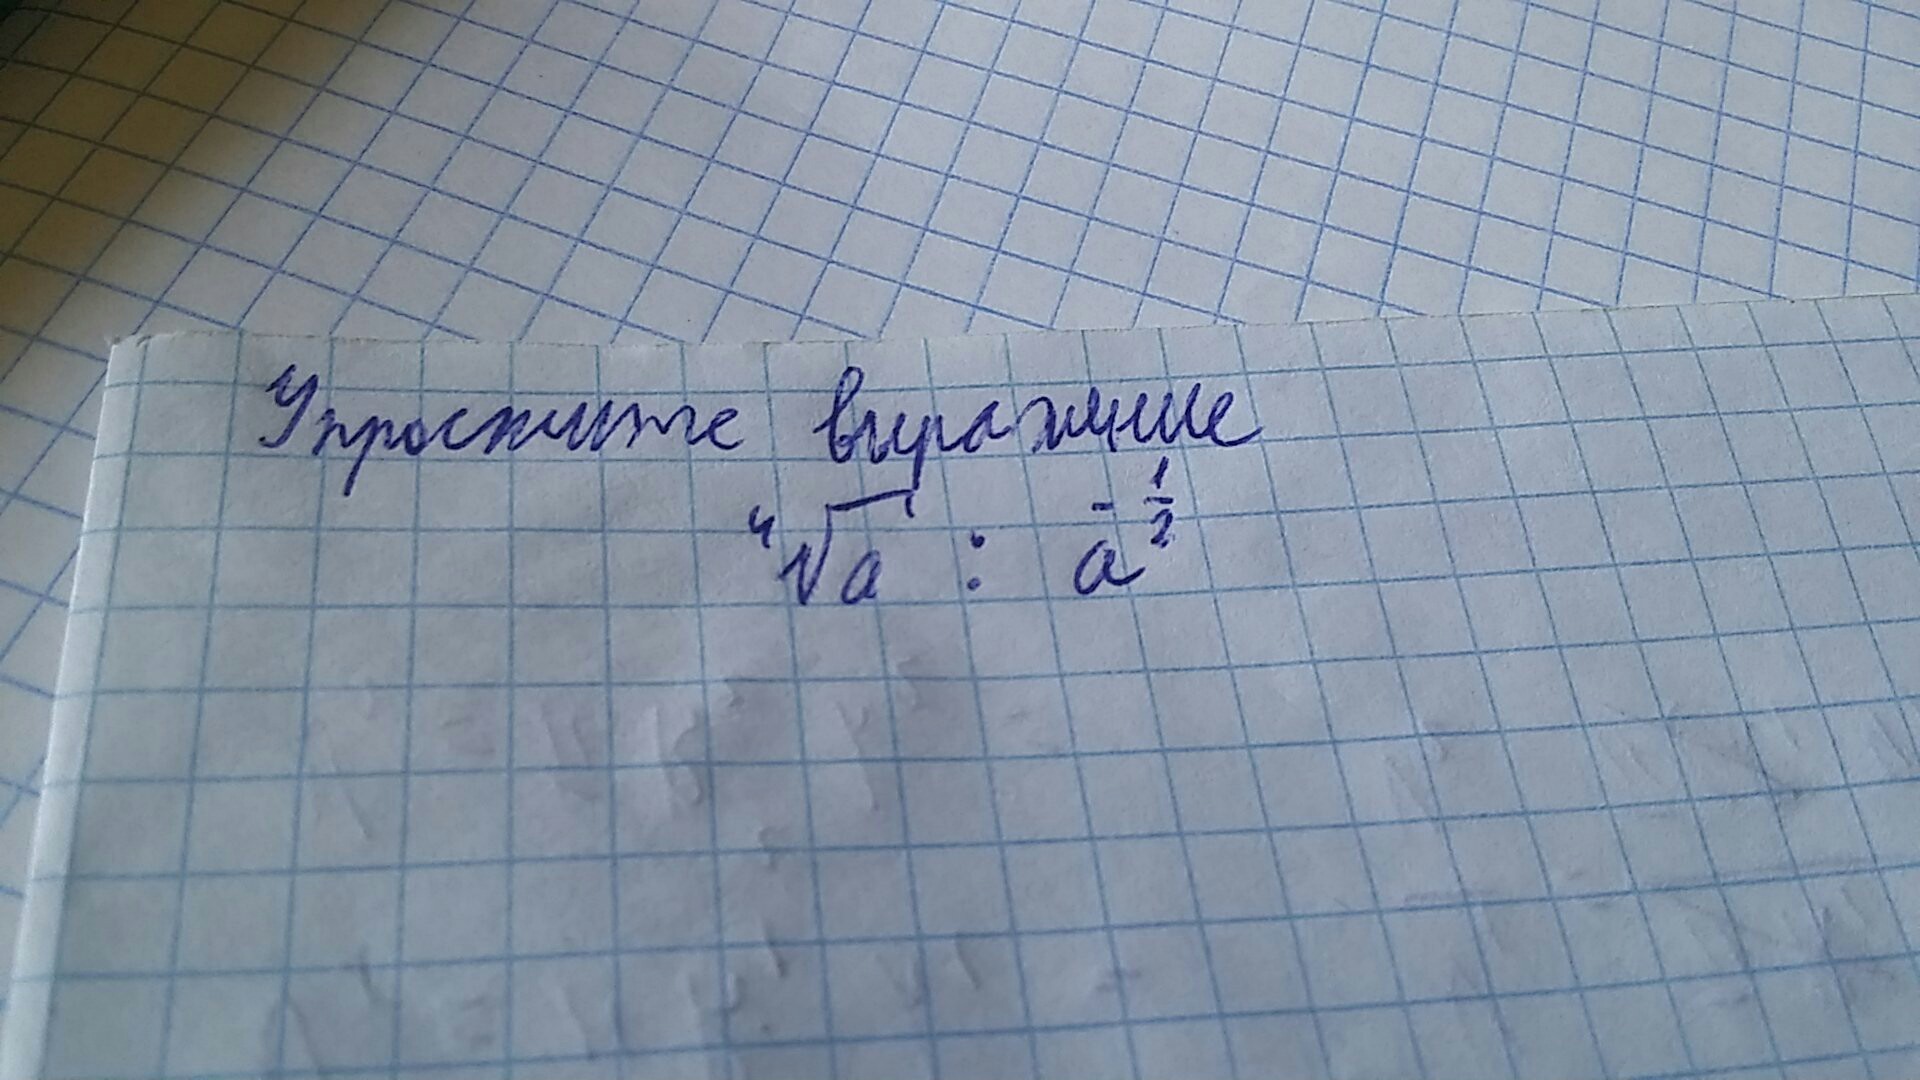 Упростите выражение
⁴√a : a^{-1/2}